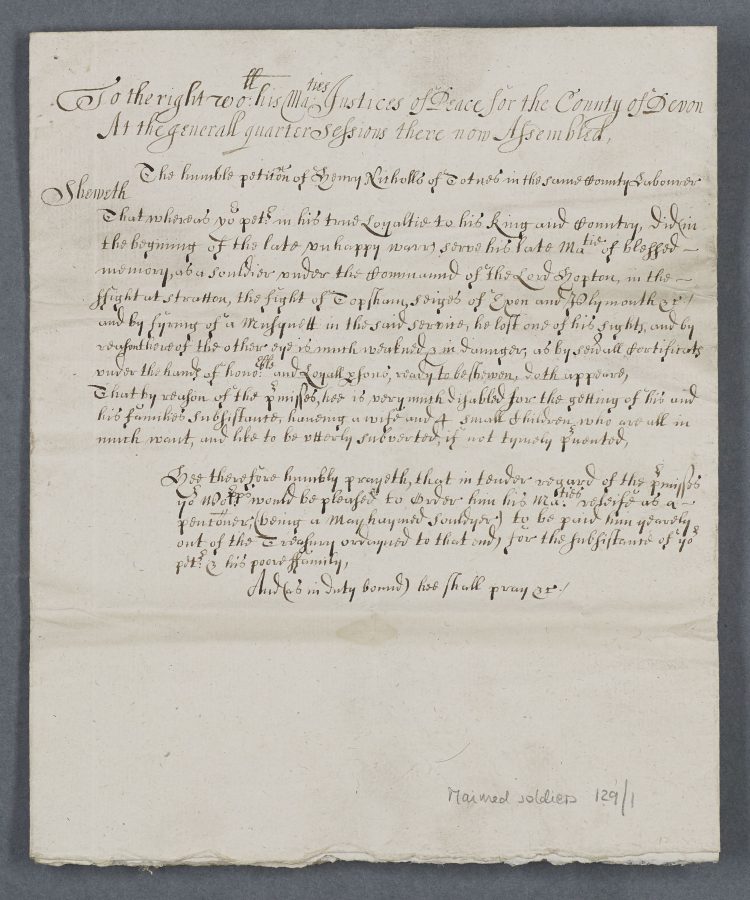 To the right wo:ll his Ma:ties Justices of Peace for the County of Devon
At the generall quarter Sessions there now Assembled,
The humble peticon of Henry Nicholls of Totnes in the same County Labourer
Sheweth
That whereas yor petr. in his true Loyaltie to his King and Country, did (in
the begining of the late unhappy warr) serve his late Matie of blessed
memory, as a souldier under the Command of the Lord Hopton, in the
ffight at Stratton, the fight of Topsham, seiges of Exon and Plymouth &c /
and by fyring of a Musquett in the said service, he lost one of his sights, and by
reason thereof the other eye is much weakned & in dainger, as by sevall Certificats
under the hands of honoble and Loyall psons, ready to be shewen, doth appeare,
That by reason of the pmisses, hee is very much disabled for the getting of his and
his families subsistance, haveing a wife and 4 small Children, who are all in
much want, and like to be utterly subverted, if not tymely pvented,
Hee therefore humbly prayeth, that in tender regard of the pmisses
yor Worpps would be pleased to Order him his Ma:ties releife as a
pentioner, (being a Mayhaymed Souldyer) to be paid him yearely
out of the Treasury ordayned to that end, for the subsistance of yor
petr. & his poore ffamily,
And (as in duty bound) hee shall pray &c /
Maimed soldiers 129/1